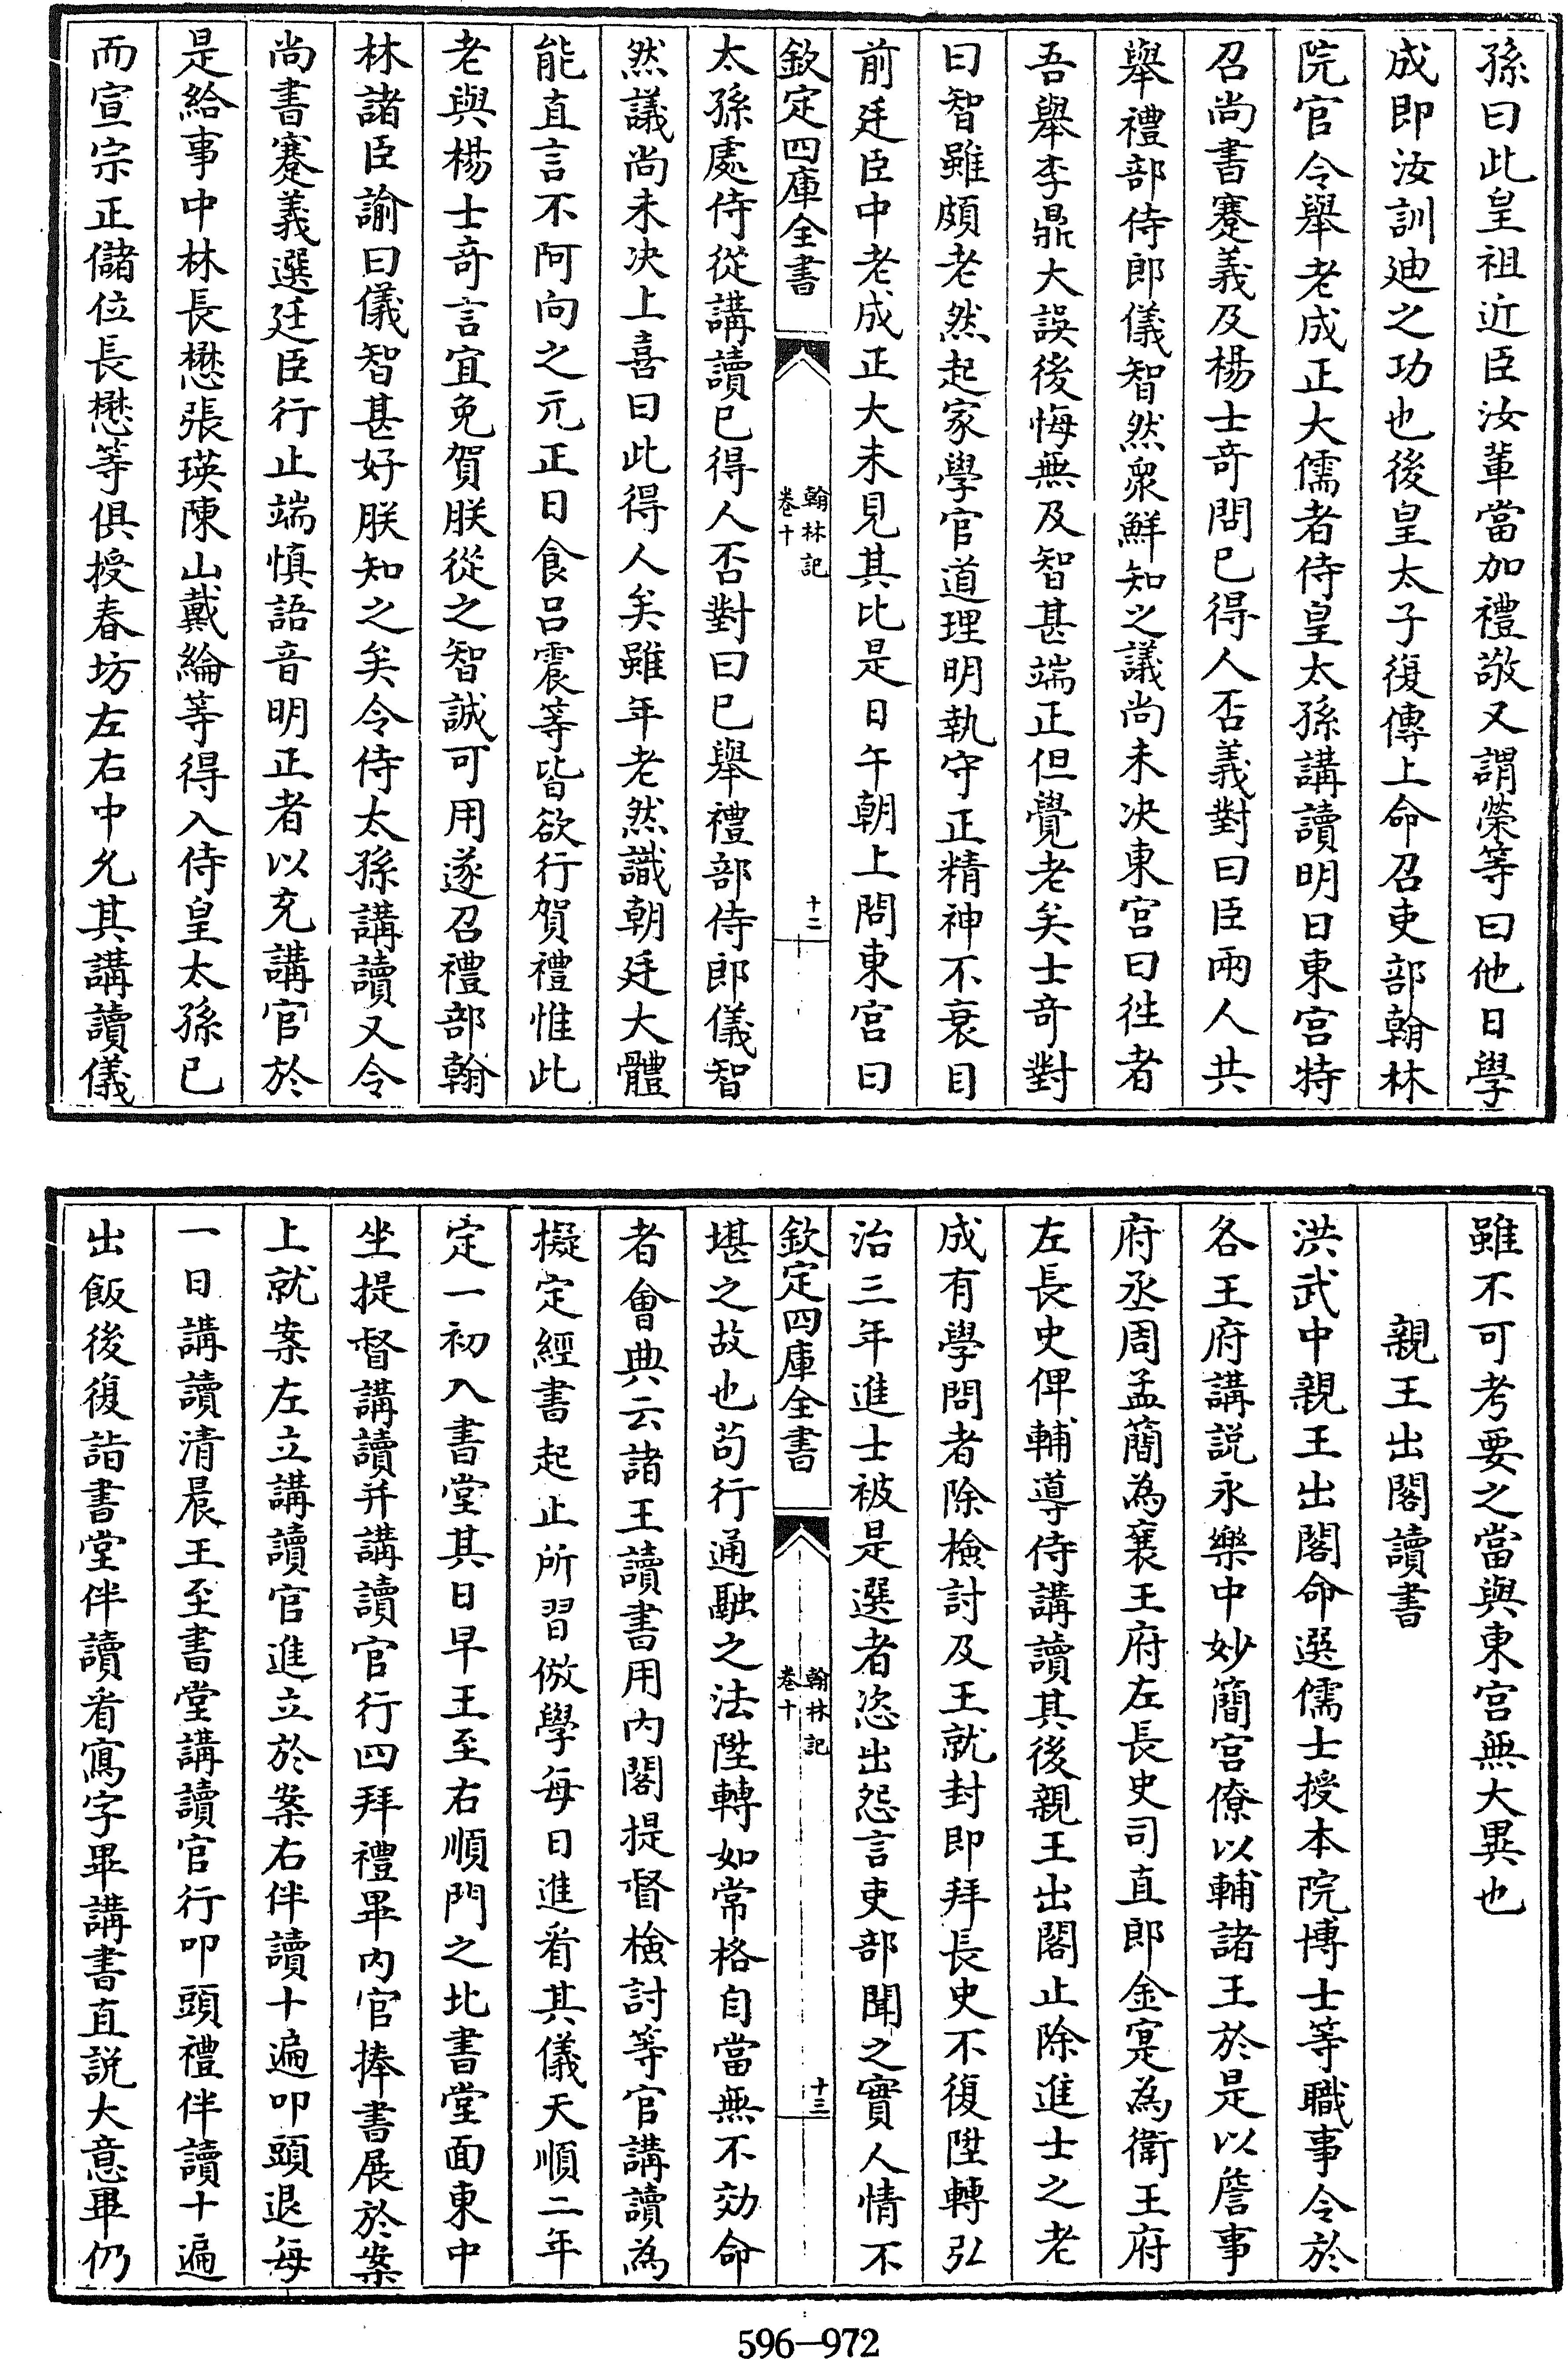 孫曰此皇祖近臣汝輩當加禮敬又謂榮等曰他日學
成即汝訓迪之功也後皇太子復傳上命召吏部翰林
院官令舉老成正大儒者侍皇太孫講讀明日東宮特
召尚書蹇義及楊士奇問已得人否義對曰臣兩人共
舉禮部侍郎儀智然衆鮮知之議尚未决東宮曰徃者
吾舉李鼎大誤後悔無及智甚端正但覺老矣士奇對
曰智雖頗老然起家學官道理明執守正精神不衰目
前廷臣中老成正大未見其比是日午朝上問東宮曰
欽定四庫全書
翰林記
卷十
十二
太孫處侍從講讀已得人否對曰已舉禮部侍郎儀智
然議尚未决上喜曰此得人矣雖年老然識朝廷大體
能直言不阿向之元正日食呂震等皆欲行賀禮惟此
老與楊士奇言宜免賀朕從之智誠可用遂召禮部翰
林諸臣諭曰儀智甚好朕知之矣令侍太孫講讀又令
尚書蹇義選廷臣行止端慎語音明正者以充講官於
是給事中林長懋張瑛陳山戴綸等得入侍皇太孫已
而宣宗正儲位長懋等俱授春坊左右中允其講讀儀
雖不可考要之當與東宮無大異也
親王出閣讀書
洪武中親王出閣命選儒士授本院博士等職事令於
各王府講説永樂中妙簡宮僚以輔諸王於是以詹事
府丞周孟簡為襄王府左長史司直郎金寔為衛王府
左長史俾輔導侍講讀其後親王出閣止除進士之老
成有學問者除檢討及王就封即拜長史不復陞轉弘
治三年進士被是選者恣出怨言吏部聞之實人情不
欽定四庫全書
翰林記
卷十
十三
堪之故也苟行通融之法陞轉如常格自當無不効命
者會典云諸王讀書用内閣提督檢討等官講讀為
擬定經書起止所習倣學每日進看其儀天順二年
定一初入書堂其日早王至右順門之北書堂面東中
坐提督講讀并講讀官行四拜禮畢内官捧書展於案
上就案左立講讀官進立於案右伴讀十遍叩頭退每
一日講讀清晨王至書堂講讀官行叩頭禮伴讀十遍
出飯後復詣書堂伴讀看寫字畢講書直説大意畢仍
596—972